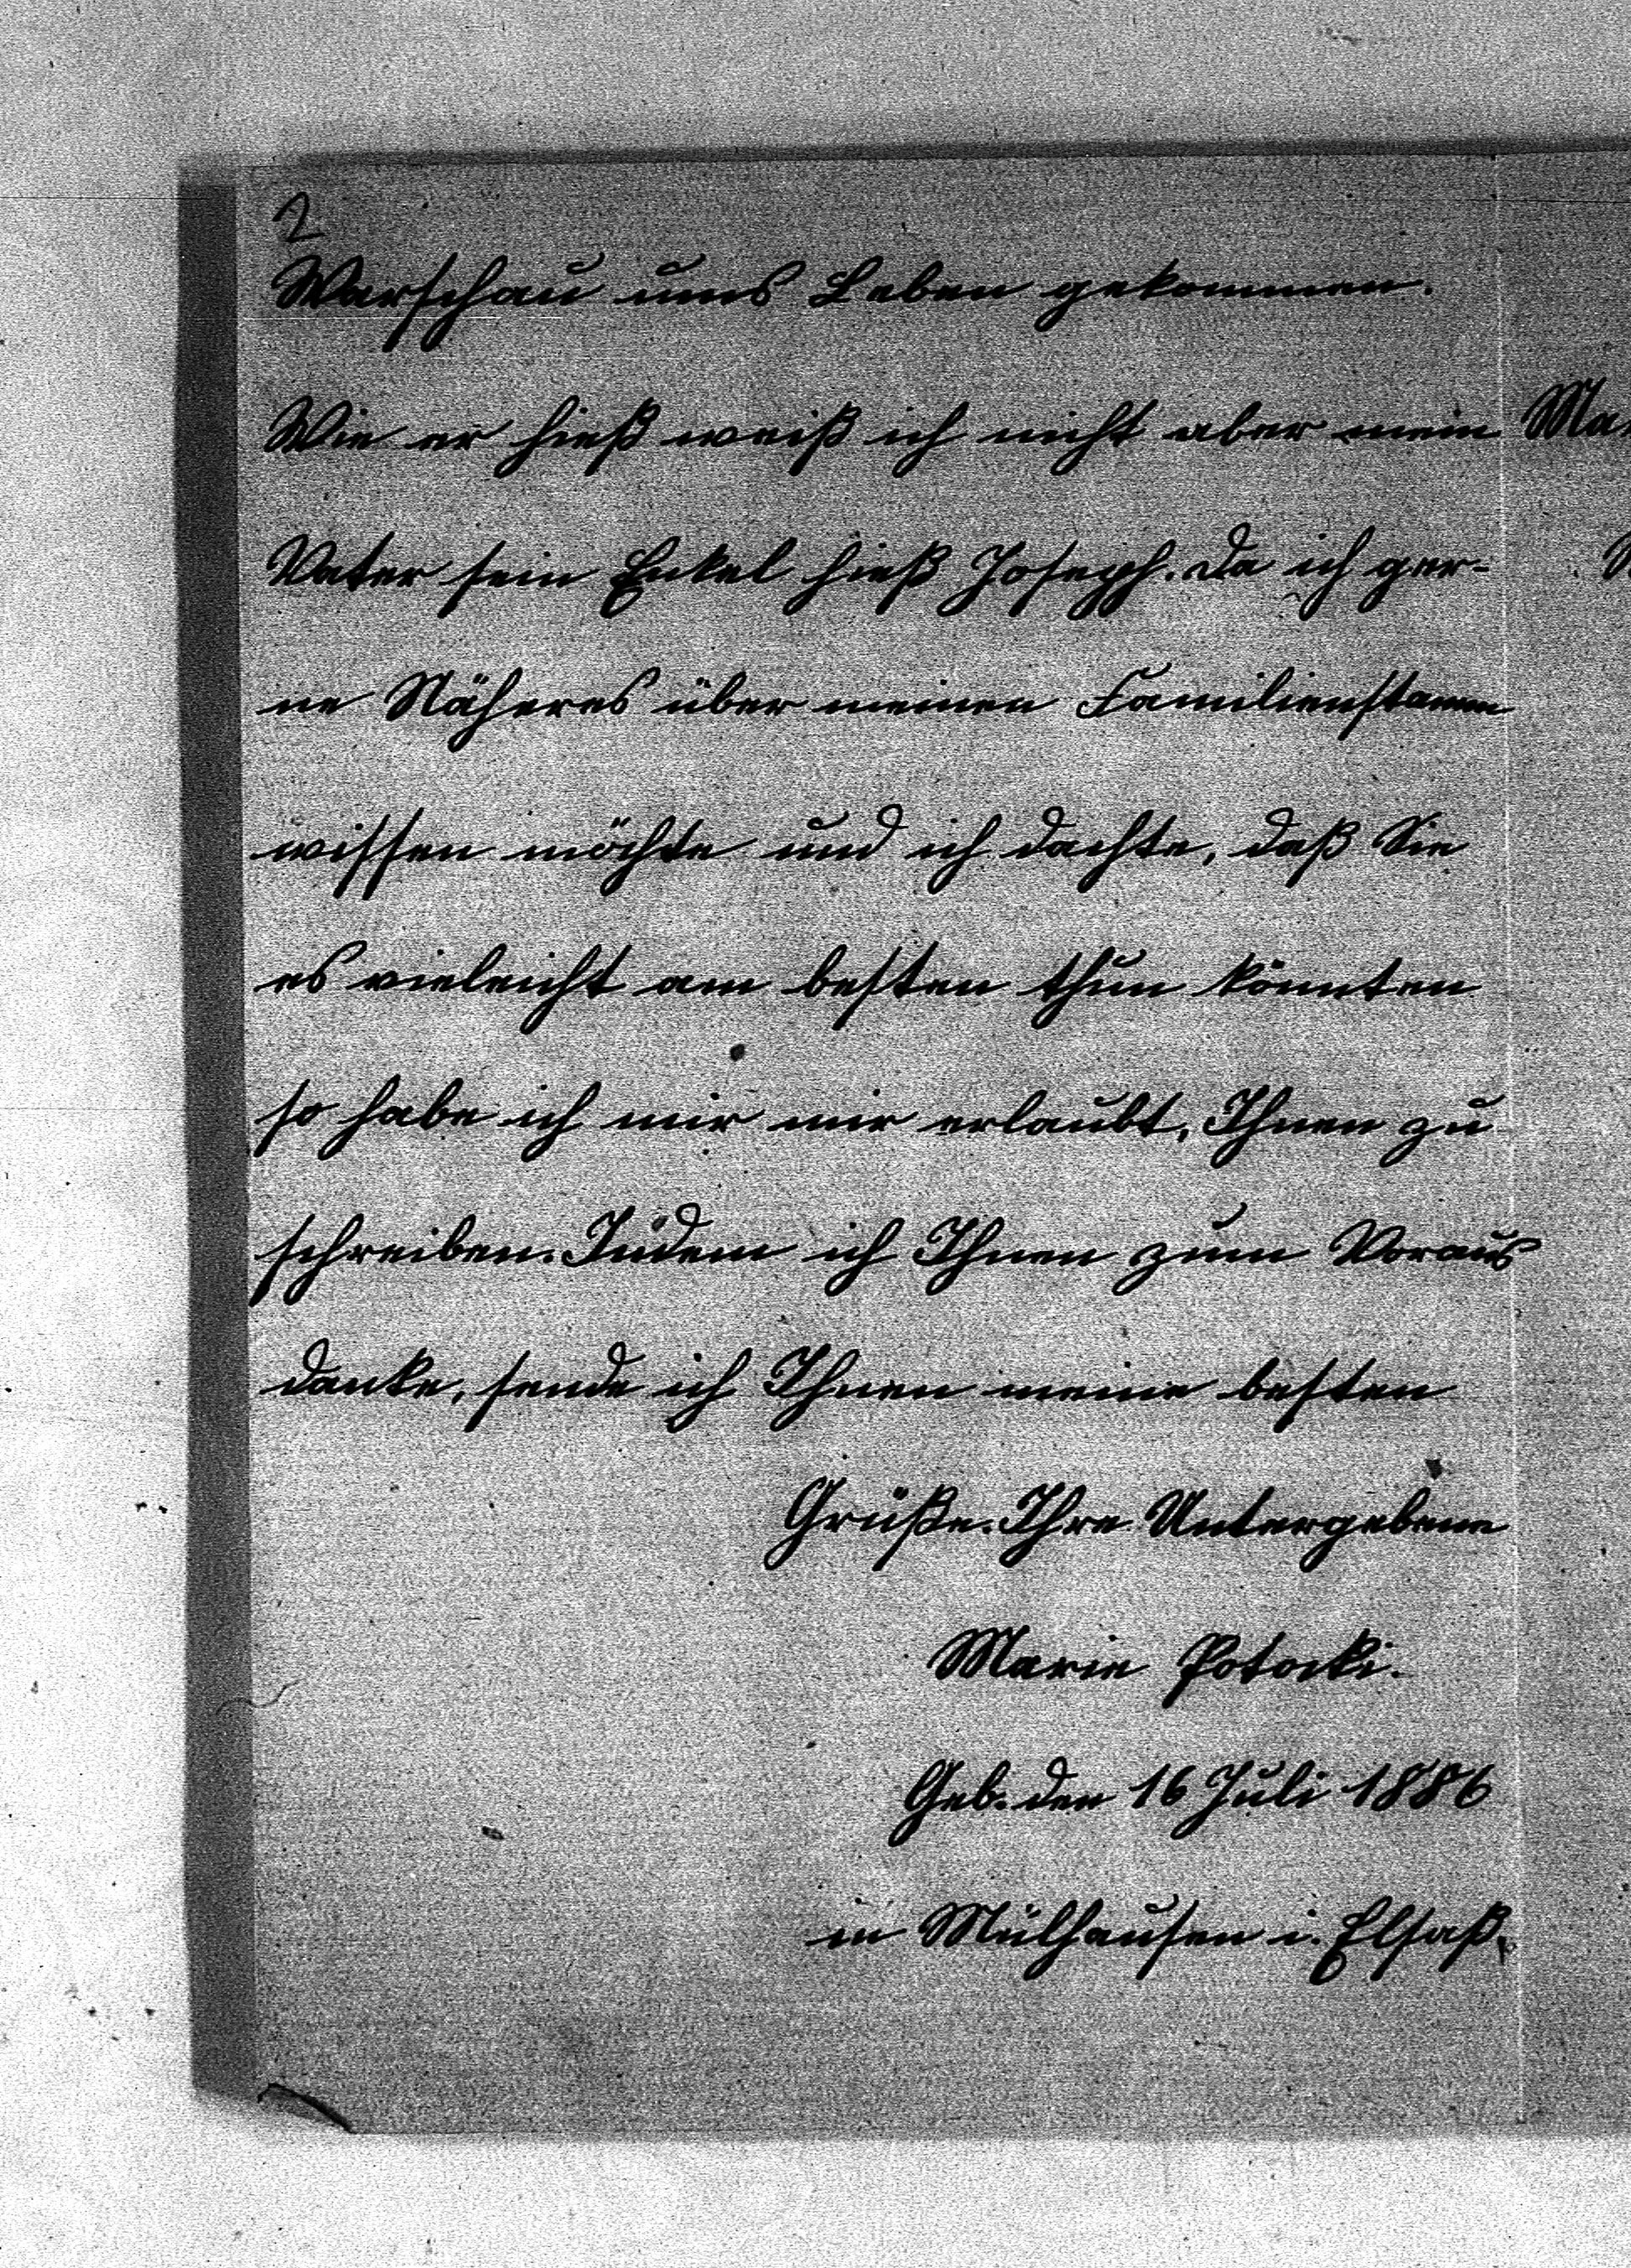 2
Warschau ums Leben gekommen.
Wie er hieß weiß ich nicht aber mein
Vater sein Enkel hieß Joseph. Da ich ger-
ne Näheres über meinen Familienstamm
wissen möchte und ich dachte, daß Sie
es vieleicht am besten thun könnten
so habe ich mir mir erlaubt, Ihnen zu
schreiben. Indem ich Ihnen zum Voraus
danke, sende ich Ihnen meine besten
Grüße. Ihre Untergebene
Marie Potocki.
Geb. den 16 Juli 1886
in Mülhausen i. Elsaß.